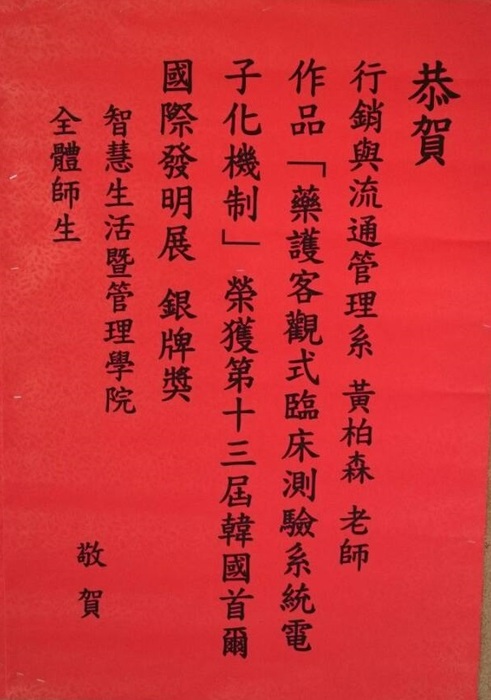 恭賀
行銷與流通管理系 黃柏森 老師
作品「藥護客觀式臨床測驗系統電
子化機制」 榮獲第十三屆韓國首爾
國際發明展 銀牌獎
智慧生活暨管理學院
全體師生
敬賀